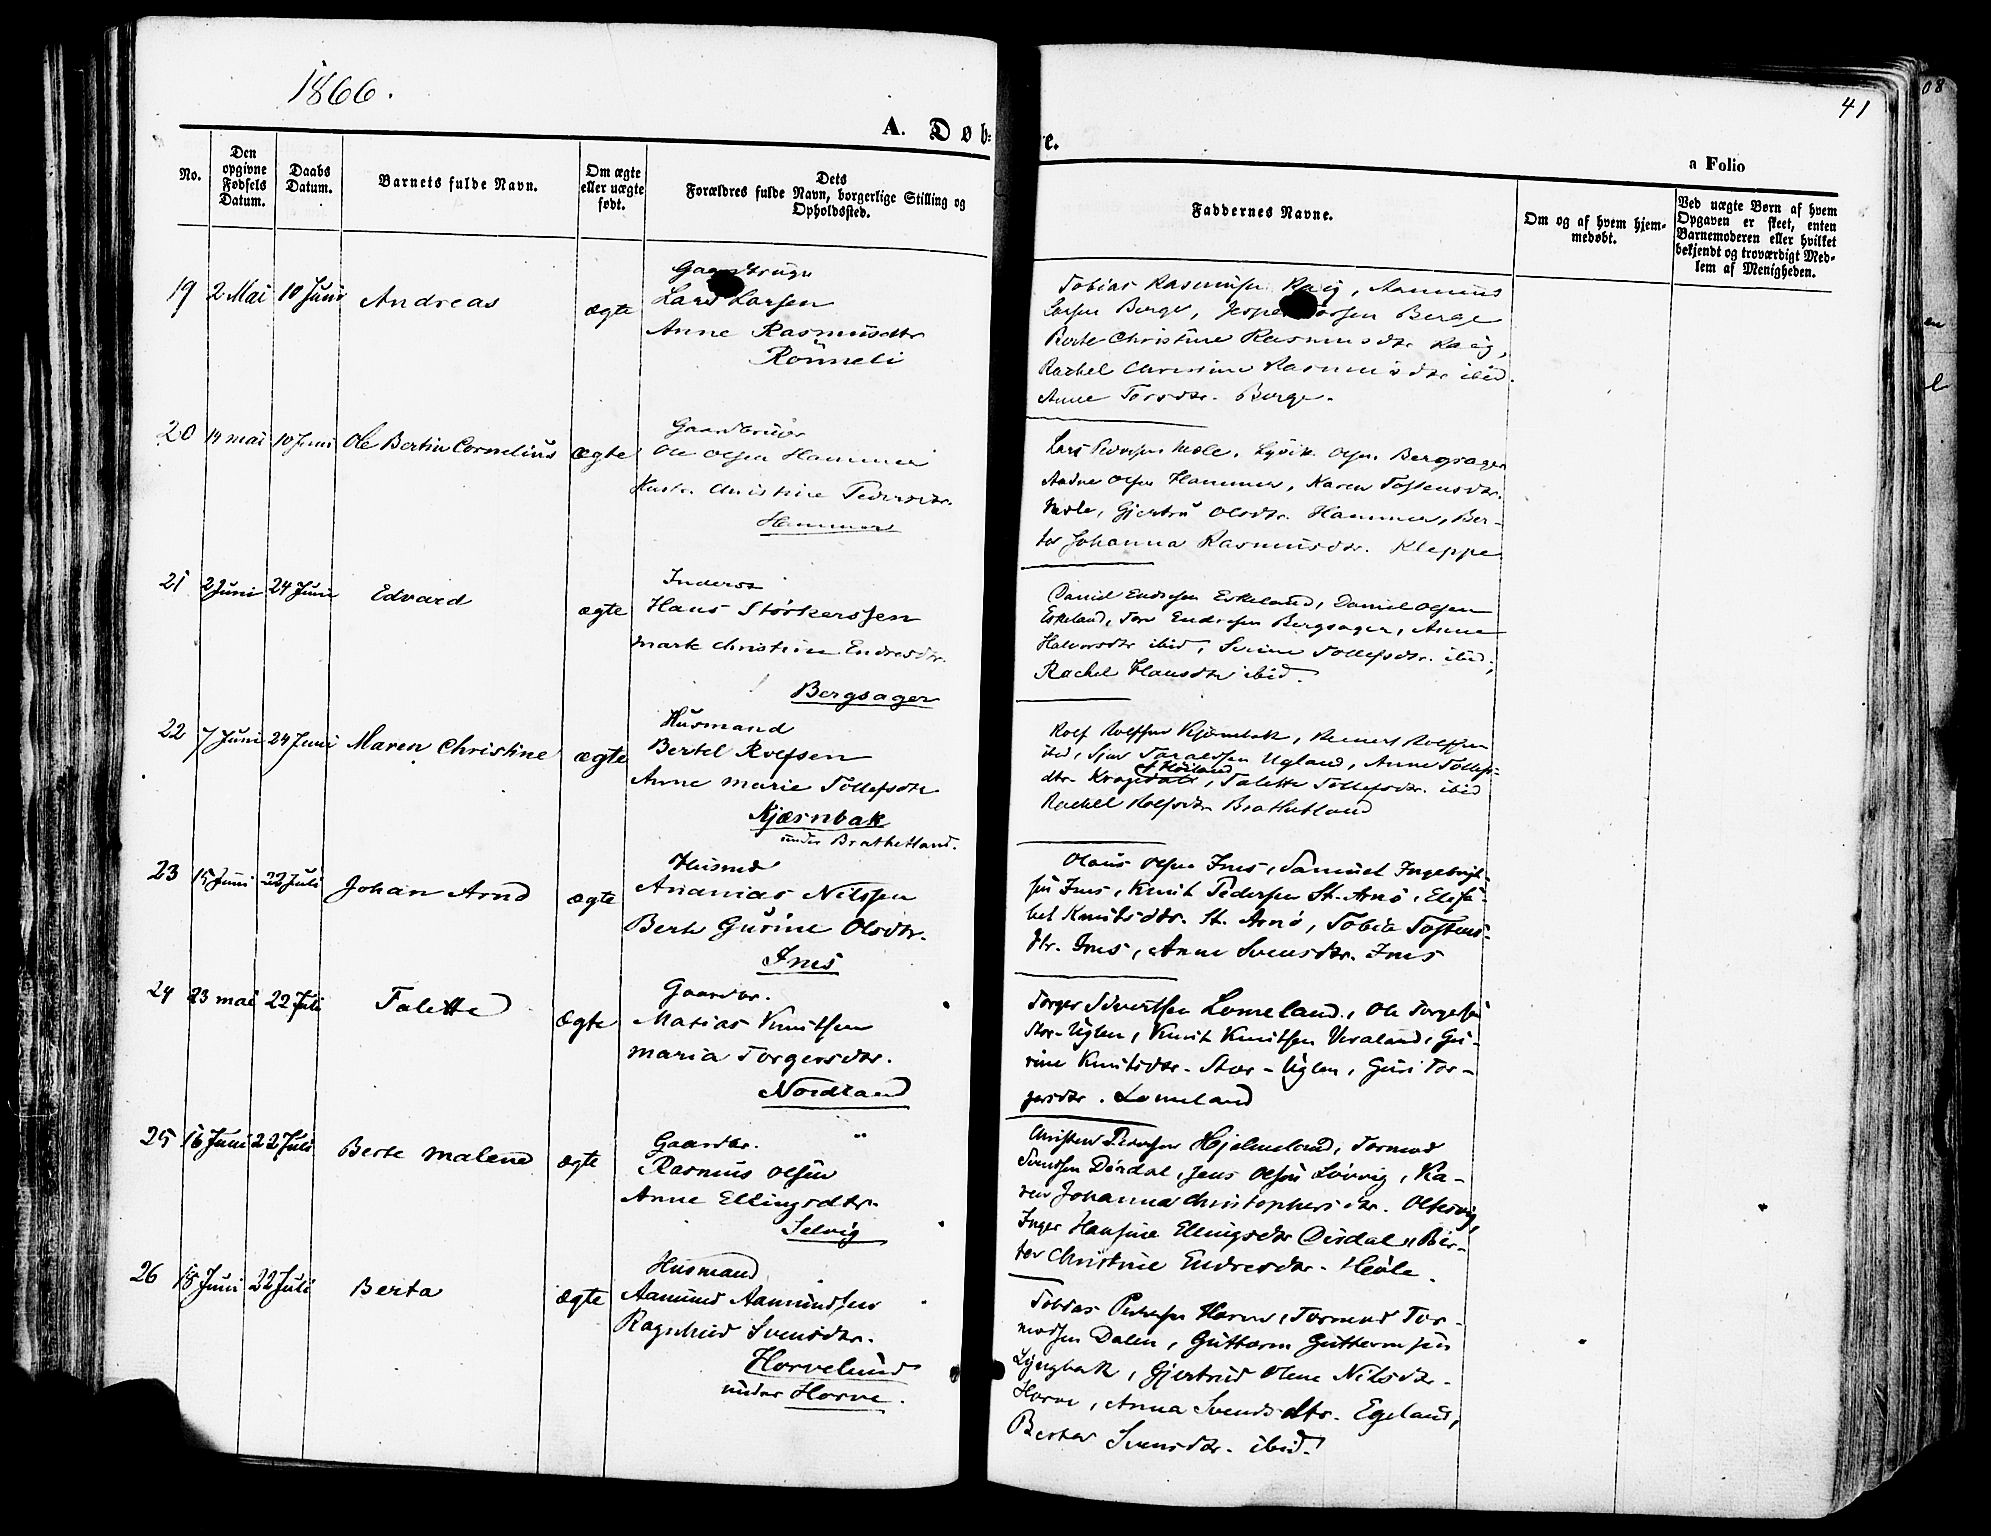 1866.
41
08
A. Døb=
e.
a Folio
No.
Den
opgivne
Fødsels
Datum.
Daabs
Datum.
Barnets fulde Navn.
Om ægte
eller uægte
født.
Dets
Forældres fulde Navn, borgerlige Stilling og
Opholdssted.
Faddernes Navne.
Om og af hvem hjem-
medøbt.
Ved uægte Børn af hvem
Opgaven er skeet, enten
Barnemoderen eller hvilket
bekjendt og troværdigt Med-
lem af Menigheden.
19 2 Mai 10 Juni Andreas ægte
Lars Larsen
Anne Rasmusdtr
Rönneli
Tobias Rasmusen Aamund
Larsen Berge, Berge
Berte Christine Rasmusdtr
Rachel Christine Rasmusdtr ibid.
Anne Torsdtr. Berge.
20 14 mai 10 Juni Ole Bertin Cornelius ægte
Gaardbruger
Ole Olsen Hammer
Christine Pedersdtr.
Hammer
Lars Pedersen Mæle, Olsen Bergsager
Aadne Olsen Hammer, Karen Tostensdtr.
Mæle, Gjertru Olsdtr. Hammer, Ber-
ta Johanna Rasmusdtr. Kleppe
21 2 Juni 24 Juni Edvard ægte
Inderst
Hans Störkerssen
Marte Christine Endresdtr.
Bergsager
Daniel Endresen Eskeland, Daniel Olsen
Eskeland, Tore Endresen Bergsager, Anne
Halvorsdtr ibid, Serine Tollefsdtr. ibid,
Rachel Hansdtr ibid.
22 7 Juni 24 Juni Maren Christine ægte
Husmand
Bertel Rolfsen
Anne Marie Tollefsdtr
Kjærnbak
under Brathetland.
Rolf Rolfsen Kjærnbak, Reinert Rolfsen
ibid, Sjur Taraldsen Ugland, Anne Tollefs-
dtr. Talette Tollefsdtr. ibid
Rachel Rolfsdtr Brathetland
23 15 Juni 22 Juli Johan Arnd ægte
Husmd
Ananias Nilssen
Berte Gurine Olsdtr.
Fnes
Olaus Olsen Fnes, Samuel Ingebrigt-
sen Fnes, Knut Pedersen St. Arnö, Elisa-
bet Knutsdtr. St. Arnö, Tobia Tostens-
dtr. Fnes, Anne Svensdtr. Fnes
24 23 mai 22 Juli Talette ægte
Gaardbr.
Matias Knutsen
Maria Torgersdtr.
Nordland
Torger Sivertsen Lomeland, Ole Torgersen
Stor-Uglen, Knut Knutsen Veraland, Gu-
rine Knutsdtr. Stor-Uglen, Guri Tor-
gersdtr. Lomeland
25 16 Juni 22 Juli Berte Malene ægte
Gaardbr.
Rasmus Olsen
Anne Ellingsdtr.
Selvig
Christen Pedersen Hjelmeland, Tormod
Svendsen Dirdal, Jens Olsen Lövvig, Ka-
ren Johanna Christophersdtr. Oltesvig,
Inger Hansine Ellingsdtr Dirdal, Ber-
ta Christine Endresdtr. Hëöle.
26 18 Juni 22 Juli Berta ægte
Husmand
Aamund Aamundsen
Ragnhild Svensdtr.
Horvelund
under Horve.
Tobias Pedersen Horve, Tormod Tor-
modsen Dalen, Guttorm Guttormsen
Lyngbak, Gjertrud Oline Nilsdtr.
Horve, Anna Svendsdtr. Egeland,
Berta Svensdtr. ibid.